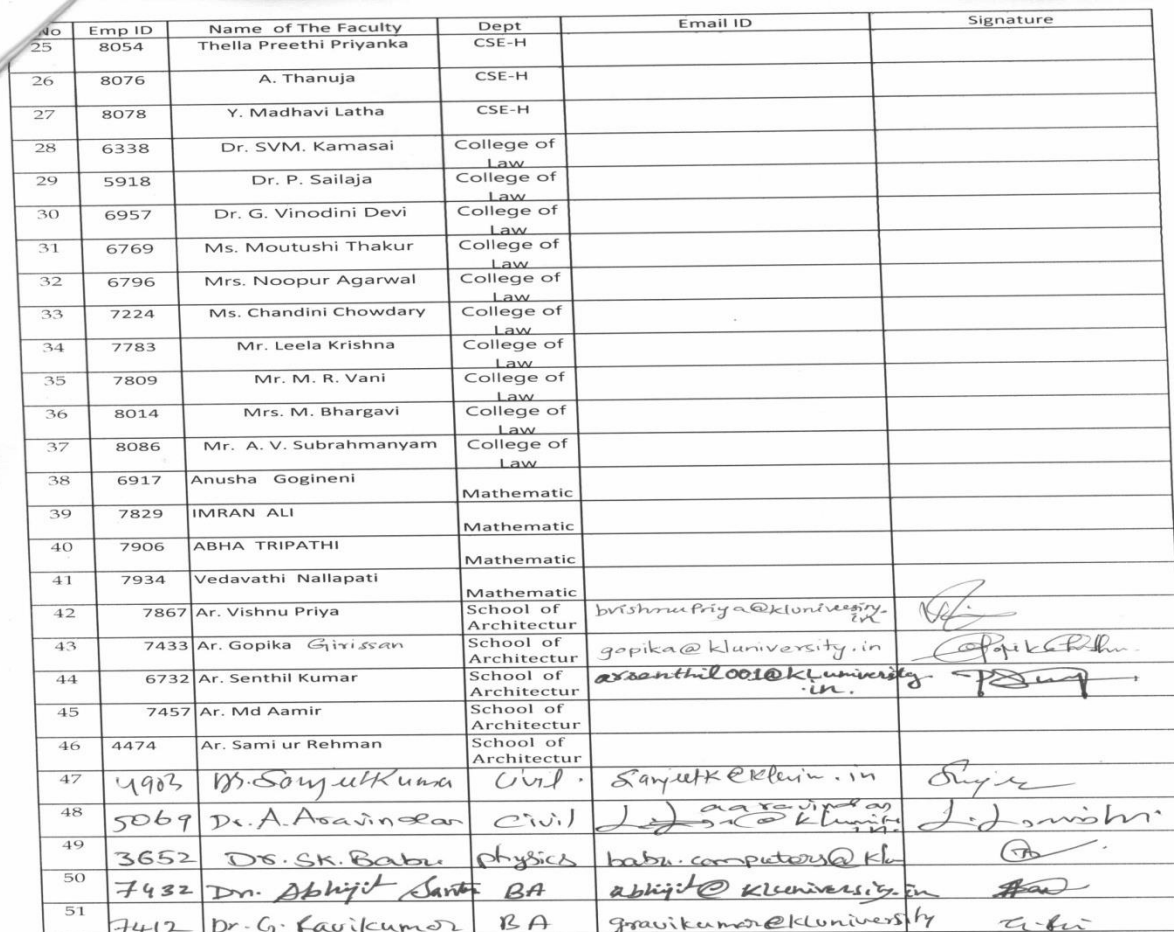 No Emp ID Name of The Faculty Dept Email ID Signature
25 8054 Thella Preethi Priyanka CSE-H
26 8076 A. Thanuja CSE-H
27 8078 Y. Madhavi Latha CSE-H
28 6338 Dr. SVM. Kamasai College of
Law
29 5918 Dr. P. Sailaja College of
Law
30 6957 Dr. G. Vinodini Devi College of
Law
31 6769 Ms. Moutushi Thakur College of
Law
32 6796 Mrs. Noopur Agarwal College of
Law
33 7224 Ms. Chandini Chowdary College of
Law
34 7783 Mr. Leela Krishna College of
Law
35 7809 Mr. M. R. Vani College of
Law
36 8014 Mrs. M. Bhargavi College of
Law
37 8086 Mr. A. V. Subrahmanyam College of
Law
38 6917 Anusha Gogineni
Mathematic
39 7829 IMRAN ALI
Mathematic
40 7906 ABHA TRIPATHI
Mathematic
41 7934 Vedavathi Nallapati
Mathematic
42 7867 Ar. Vishnu Priya School of
Architectur
43 7433 Ar. Gopika Girissan School of gopika@kluniversity.in
Architectur
44 6732 Ar. Senthil Kumar School of arsenthil001@KLuniversity
Architectur .in.
45 7457 Ar. Md Aamir School of
Architectur
46 4474 Ar. Sami ur Rehman School of
Architectur
47 4903 Civil.
48 5069 Dr. A. Aravindan Civil
49 3652 Dr. SK. Babu physics babu.computers@klu
50 7432 Dr. Abhijit BA abhijit@kluniversity.in
51 7412 Dr. G. Ravikumar BA gravikumar@kluniversity